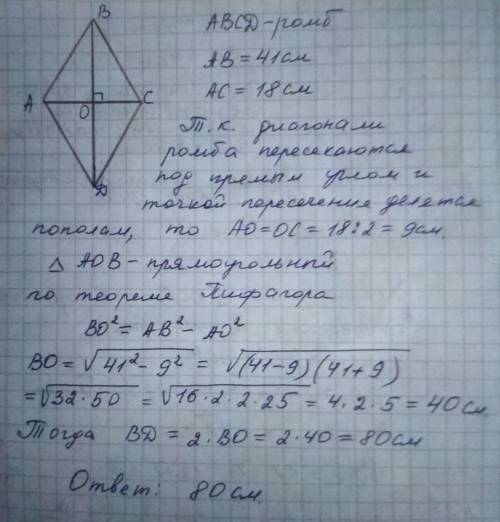 B
ABCD - ромб
AB = 41 см
A
O
C
AC = 18 см
Т.к. диагонали
ромба пересекаются
D
под прямым углом и
точкой пересечения делятся
пополам, то AO = OC = 18 : 2 = 9 см.
△ AOB - прямоугольный
по теореме Пифагора
BO² = AB² - AO²
BO = √41² - 9² = √(41-9)(41+9)
= √32·50 = √16·2·2·25 = 4·2·5 = 40 см.
Тогда BD = 2·BO = 2·40 = 80 см
Ответ: 80 см.